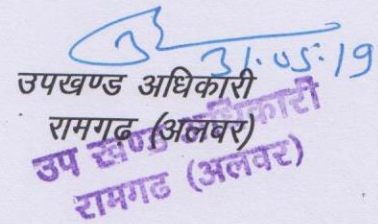 31.05.19
उपखण्ड अधिकारी
रामगढ़ (अलवर)
उप खण्ड अधिकारी
रामगढ (अलवर)